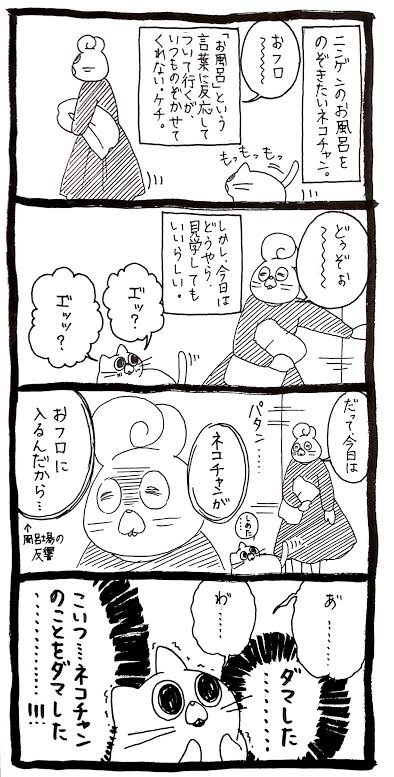 ニンゲンのお風呂を
のぞきたいネコチャン。
おフロ
〜〜〜〜
「お風呂」という
言葉に反応して
ついて行くが、
いつものぞかせて
くれない。ケチ。
もっもっもっ
どぅぞぉ
〜〜〜〜
しかし、今日は
どうやら
見学しても
いいらしい。
エッ?
エッッ?
だって、今日は
パタン……
しめた…
ネコチャンが
おフロに
入るんだから…
↑風呂場の
反響
あ……
わ……
ダマした
………
こいつ……ネコチャン
のことをダマした
…………!!!